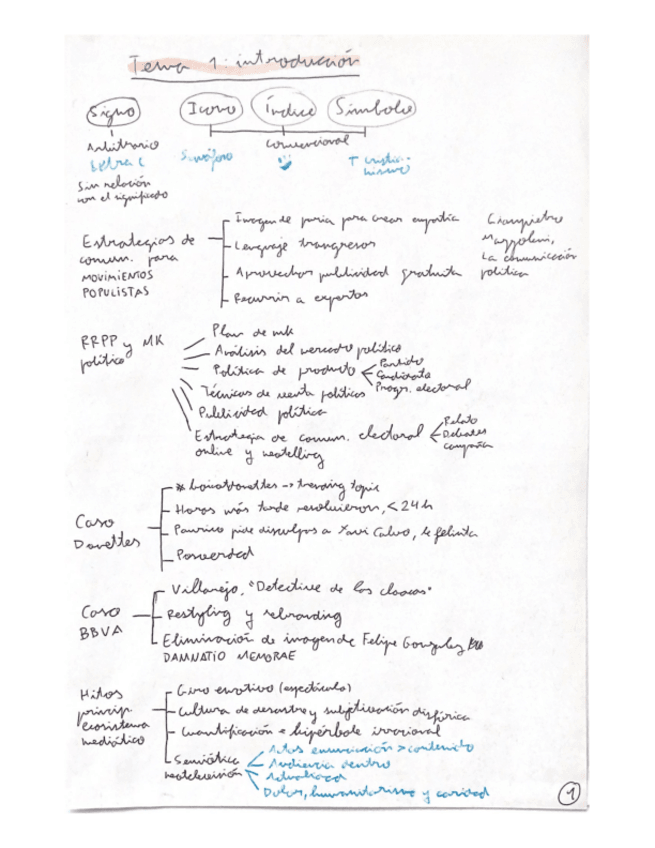 Tema 1: introducción
Signo Icono Índice Símbolo
Arbitrario convencional
Letra C Semáforo † cristia-
nismo
Sin relación
con el significado
Estrategias de
comun. para
MOVIMIENTOS
POPULISTAS
Imagen de paria para crear empatía
Lenguaje trangresor
Aprovechar publicidad gratuita
Recurrir a expertos
Gianpietro
Mazzoleni,
La comunicación
política
RRPP y MK
político
Plan de mk
Análisis del mercado político
Política de producto
Partido
Candidato
Progr. electoral
Técnicas de venta políticas
Publicidad política
Estrategia de comun. electoral
online y
Relato
Debates
campaña
Caso
Donettes
-> trending topic
Horas más tarde resolvieron, < 24 h
Panrico pide disculpas a Xavi Calvo, le felicita
Posverdad
Caso
BBVA
Villarejo, "Detective de las cloacas"
Restyling y rebranding
Eliminación de imagen de Felipe González
DAMNATIO MEMORAE
Hitos
princip.
ecosistema
mediático
Giro emotivo (espectáculo)
Cultura de desastre y subjetivación disfórica
Cuantificación e hipérbole irracional
Semiótica
neotelevisión
Actos enunciación > contenido
Audiencia dentro
Actualidad
Dolor, humanitarismo y caridad
1